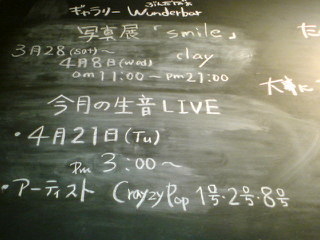 ぶんだばあ
ギャラリー Wunderbar
写真展「smile」
3月28(sat)~ clay
4月8日(wed)
am11:00~pm21:00
大事に
今月の生音LIVE
・4月21日(Tu)
pm 3:00~
・アーティスト CrayzyPop 1号・2号・8号